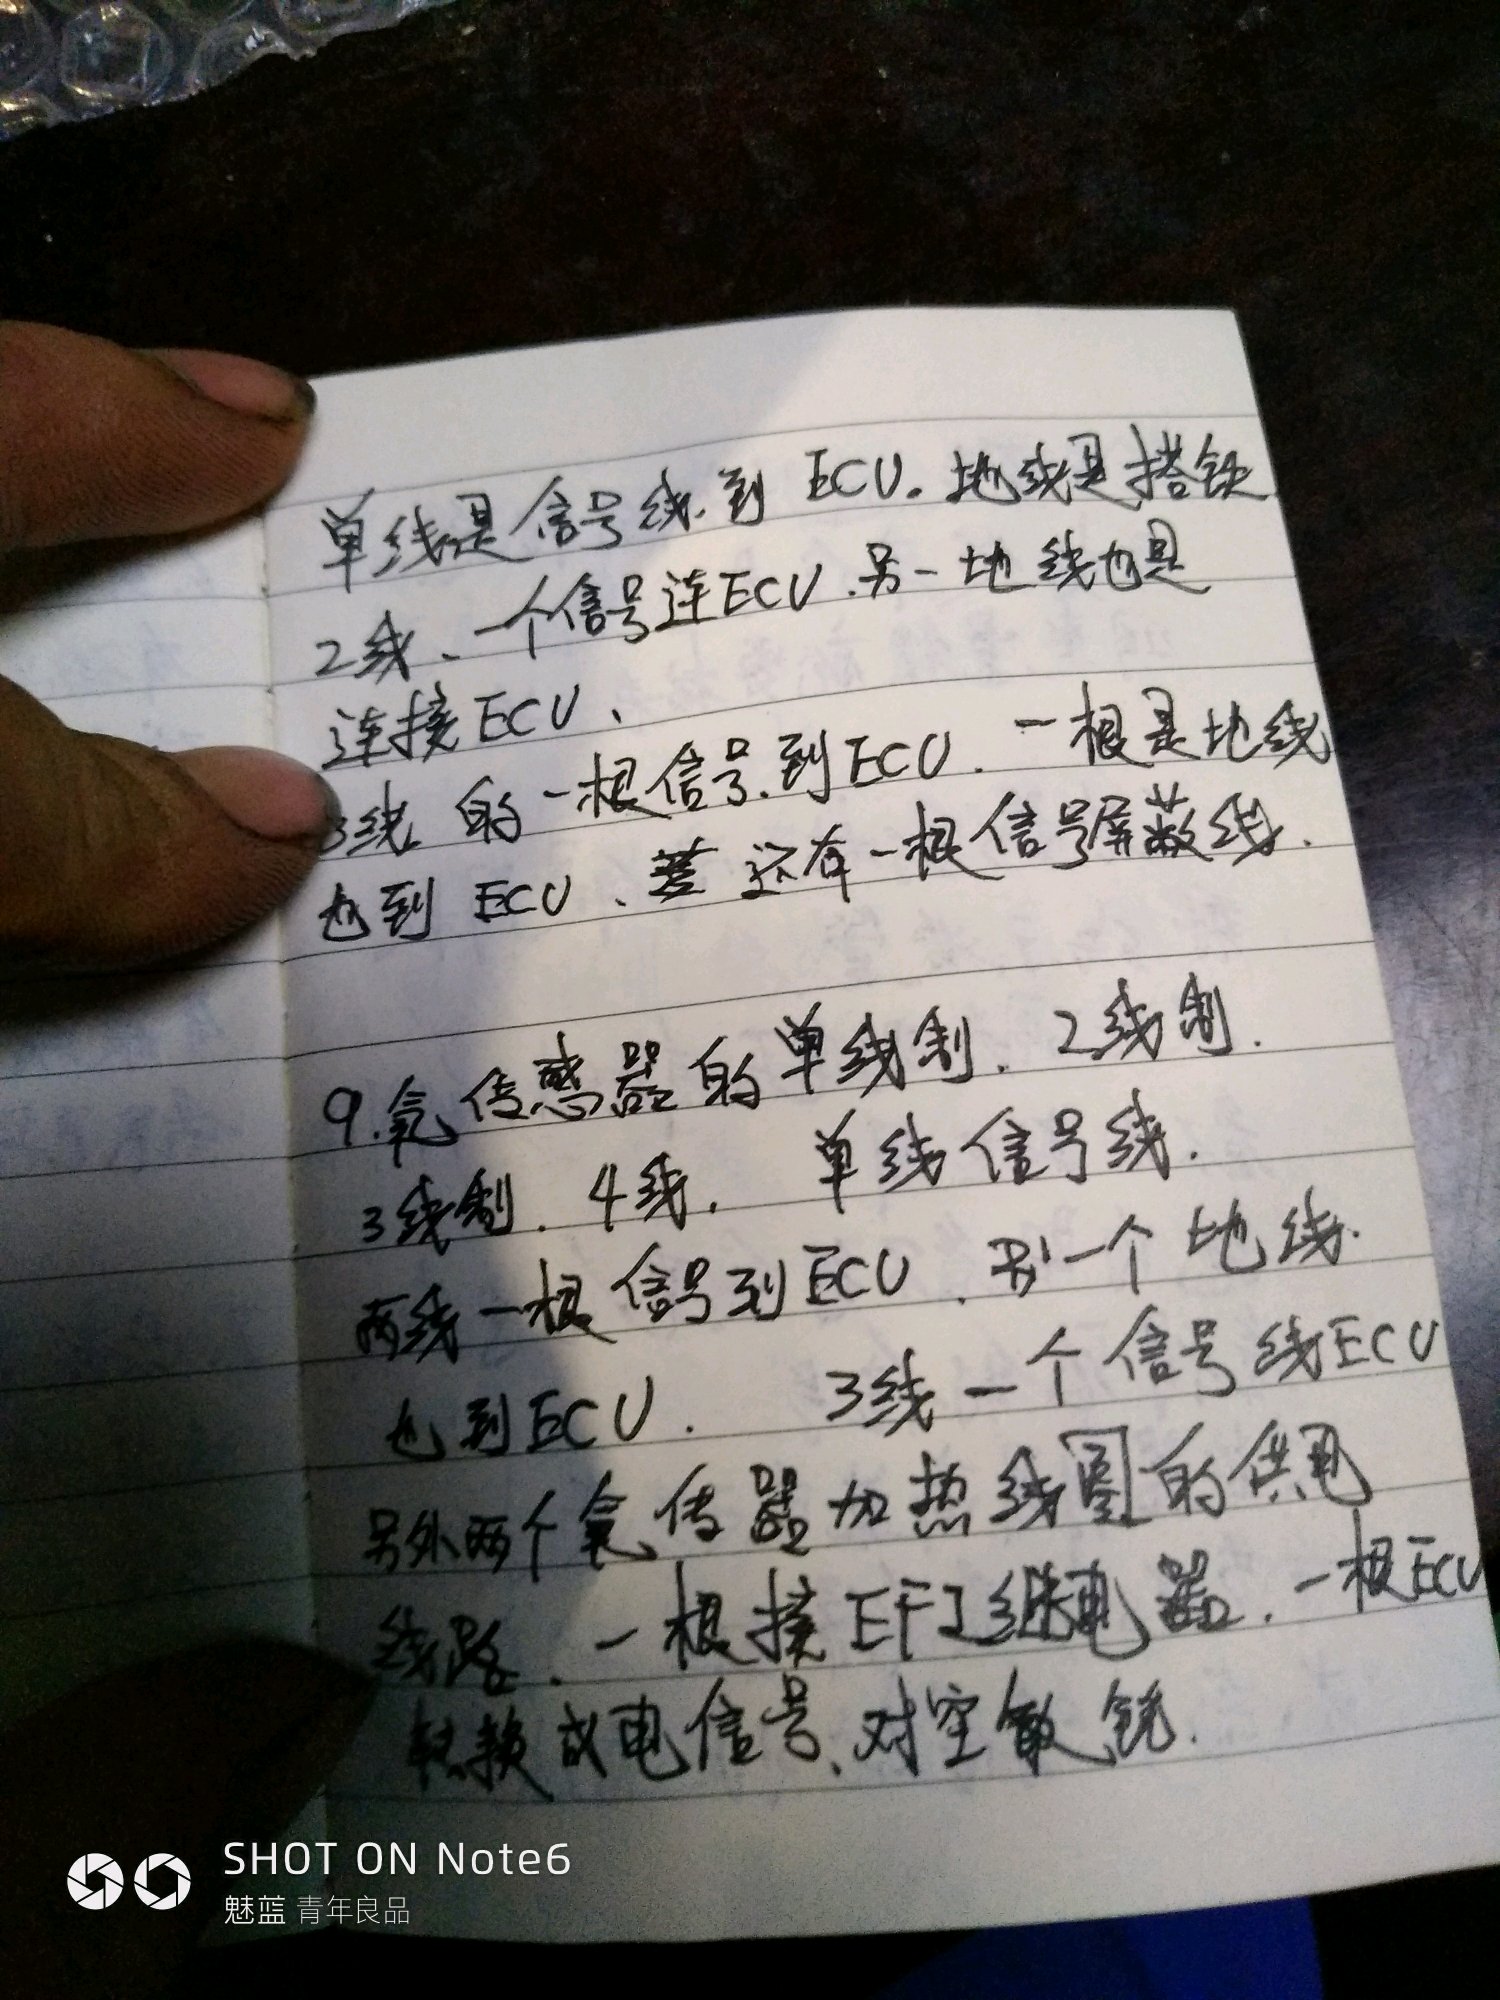 单线是信号线.到 ECU. 地线是搭铁
2线、一个信号连ECU.另一地线也是
连接ECU、
3线 的一根信号.到ECU. 一根是地线
也到 ECU、 还有一根信号屏蔽线.
9.氧传感器的单线制. 2线制.
3线制. 4线. 单线信号线.
两线一根信号到ECU. 另一个地线.
也到ECU. 3线一个信号线ECU
另外两个氧传器加热线圈的供电
线路. 一根接EFI继电器. 一根ECU
转换成电信号、对空
SHOT ON Note6
魅蓝 青年良品